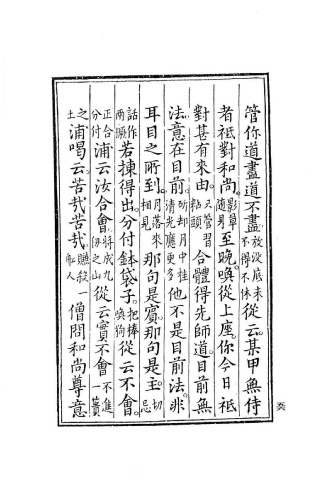 管你道盡道不盡。放沒底未不得不休從云。某甲無侍
者祇對和尚。影草隨身至晚喚從上座。你今日祇
對甚有來由。只管習粘頭合體得先師道。目前無
法。意在目前。斫却月中桂清光應更多他不是目前法。非
耳目之所到。月落來相見那句是賓。那句是主。切忌
話作兩橛若揀得出。分付鉢袋子。把捧喚狗從云不會。
正合分付浦云汝合會。將成九仞之山從云實不會不進一簣
之土浦喝云。苦哉苦哉。賺殺一船人僧問和尚尊意